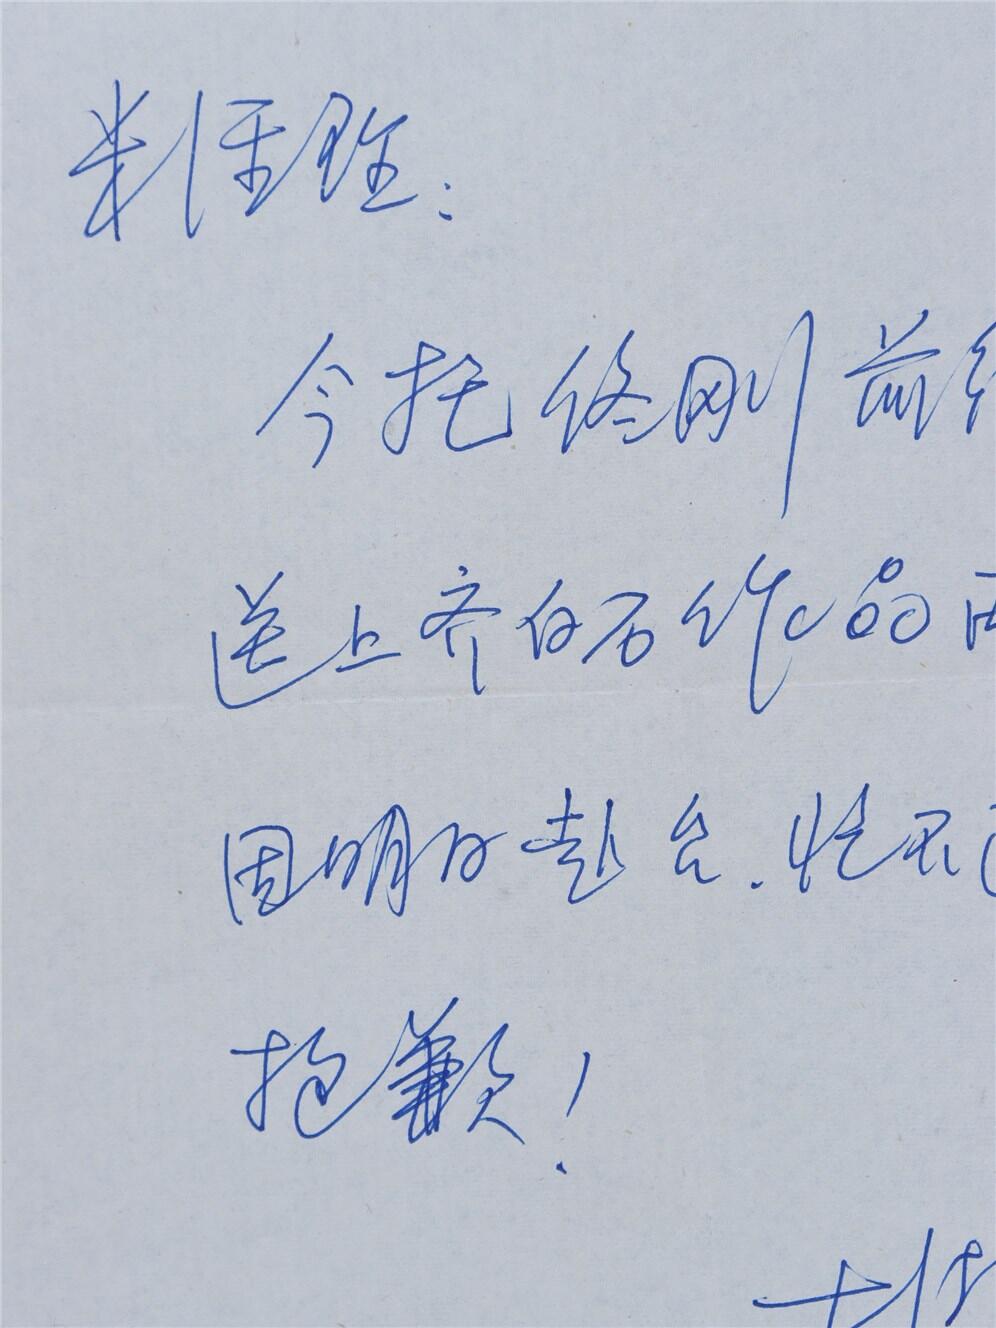 米经理：
今托佟刚前
送上齐白石作品
因明日赴台.忙不
抱歉！